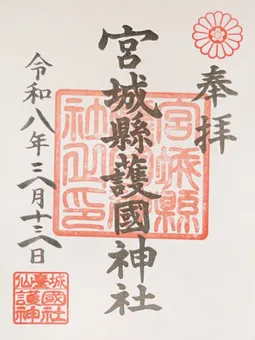 奉拝
宮城縣護國神社
宮城縣護國神社之印
令和八年三月十三日
仙臺城護國神社